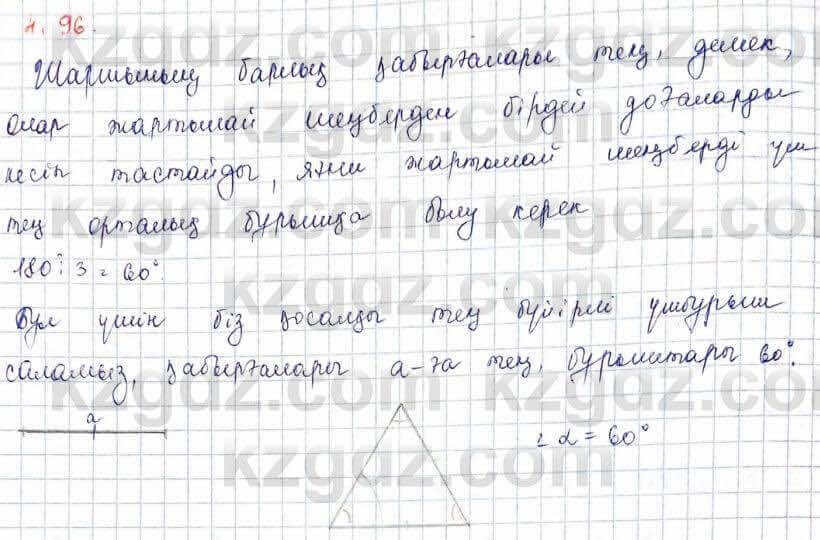 4. 96.
Шаршының барлық қабырғалары тең, демек,
олар жартылай шеңберден бірдей доғаларды
кесіп тастайды, яғни жартылай шеңберді үш
тең орталық бұрышқа бөлу керек
180 : 3 = 60°.
Бұл үшін біз қосалқы тең бүйірлі үшбұрыш
саламыз, қабырғалары a-ға тең, бұрыштары 60°.
a
∠ α = 60°
kzgdz.com